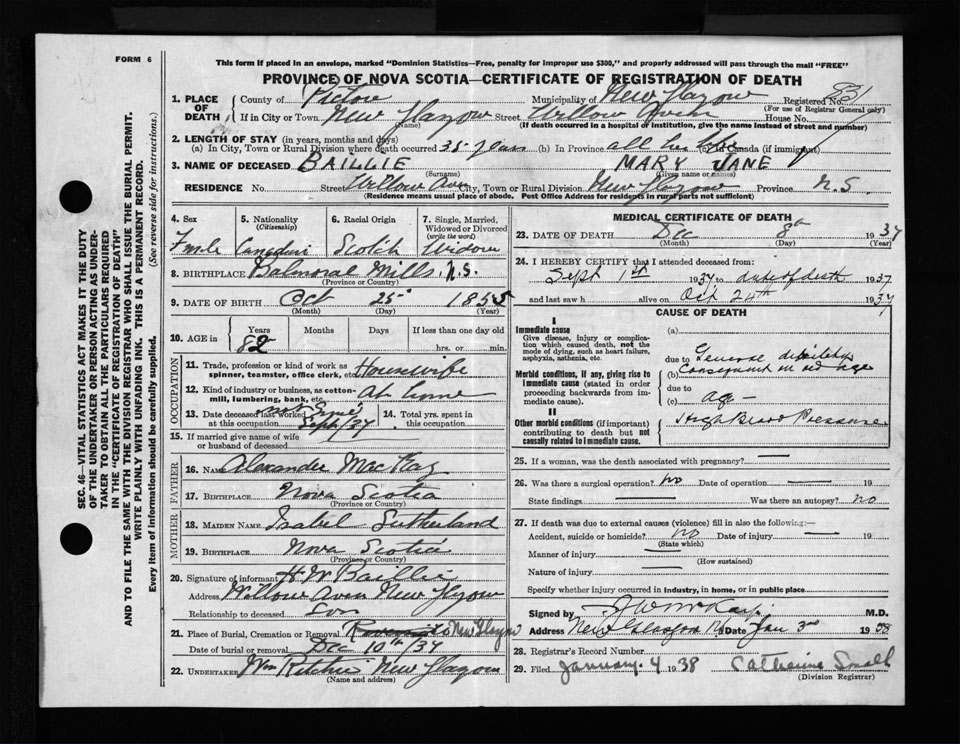 FORM 6
This form if placed in an envelope, marked "Dominion Statistics—Free, penalty for improper use $300," and properly addressed will pass through the mail "FREE"
PROVINCE OF NOVA SCOTIA—CERTIFICATE OF REGISTRATION OF DEATH
1. PLACE OF DEATH County of Pictou Municipality of New Glasgow Registered No. 831
(For use of Registrar General only)
If in City or Town New Glasgow Street Willow Aven House No.
(Name) (If death occurred in a hospital or institution, give the name instead of street and number)
2. LENGTH OF STAY (in years, months and days)
(a) In City, Town or Rural Division where death occurred 35 years (b) In Province all her life (c) In Canada (if immigrant)
3. NAME OF DECEASED BAILLIE MARY JANE
(Surname) (Given name or names)
RESIDENCE No. Street Willow Ave City, Town or Rural Division New Glasgow Province N.S.
(Residence means usual place of abode. Post Office Address for residents in rural parts not sufficient)
4. Sex 5. Nationality 6. Racial Origin 7. Single, Married, Widowed or Divorced
(Citizenship) (write the word)
Fmle Canadian Scotch Widow
8. BIRTHPLACE Balmoral Mills, N.S.
(Province or Country)
9. DATE OF BIRTH Oct 25 1855
(Month) (Day) (Year)
10. AGE in Years Months Days If less than one day old
82 hrs. or min.
OCCUPATION
11. Trade, profession or kind of work as spinner, teamster, office clerk, etc. Housewife
12. Kind of industry or business, as cotton-mill, lumbering, bank, etc. At home
13. Date deceased last worked at this occupation Sept/37 14. Total yrs. spent in this occupation
15. If married give name of wife or husband of deceased
FATHER
16. Name Alexander MacKay
17. Birthplace Nova Scotia
(Province or Country)
MOTHER
18. Maiden Name Isabel Sutherland
19. Birthplace Nova Scotia
(Province or Country)
20. Signature of informant H W Baillie
Address Willow Aven New Glasgow
Relationship to deceased Son
21. Place of Burial, Cremation or Removal New Glasgow
Date of burial or removal Dec 10th/37
22. Undertaker Wm Ritchie New Glasgow
(Name and address)
MEDICAL CERTIFICATE OF DEATH
23. DATE OF DEATH Dec 8th 1937
(Month) (Day) (Year)
24. I HEREBY CERTIFY that I attended deceased from:
Sept 1st 1937 to date of death 1937
and last saw h alive on Oct 24th 1937
CAUSE OF DEATH
I
Immediate cause (a)
Give disease, injury or complication which caused death, not the mode of dying, such as heart failure, asphyxia, asthenia, etc.
due to General debility
Morbid conditions, if any, giving rise to immediate cause (stated in order proceeding backwards from immediate cause).
(b) Consequent on old age
due to
(c) age
II
Other morbid conditions (if important) contributing to death but not causally related to immediate cause.
High Blood Pressure
25. If a woman, was the death associated with pregnancy? —
26. Was there a surgical operation? No Date of operation — 19
State findings — Was there an autopsy? no
27. If death was due to external causes (violence) fill in also the following:—
Accident, suicide or homicide? no Date of injury — 19
(State which)
Manner of injury —
(How sustained)
Nature of injury —
Specify whether injury occurred in industry, in home, or in public place
Signed by M.D.
Address New Glasgow Date Jan 3rd 1938
28. Registrar's Record Number
29. Filed January 4 1938 Catherine Small
(Division Registrar)
SEC. 46—VITAL STATISTICS ACT MAKES IT THE DUTY
OF THE UNDERTAKER OR PERSON ACTING AS UNDER-
TAKER TO OBTAIN ALL THE PARTICULARS REQUIRED
IN THE "CERTIFICATE OF REGISTRATION OF DEATH"
AND TO FILE THE SAME WITH THE DIVISION REGISTRAR WHO SHALL ISSUE THE BURIAL PERMIT.
WRITE PLAINLY WITH UNFADING INK. THIS IS A PERMANENT RECORD.
Every item of information should be carefully supplied. (See reverse side for instructions.)